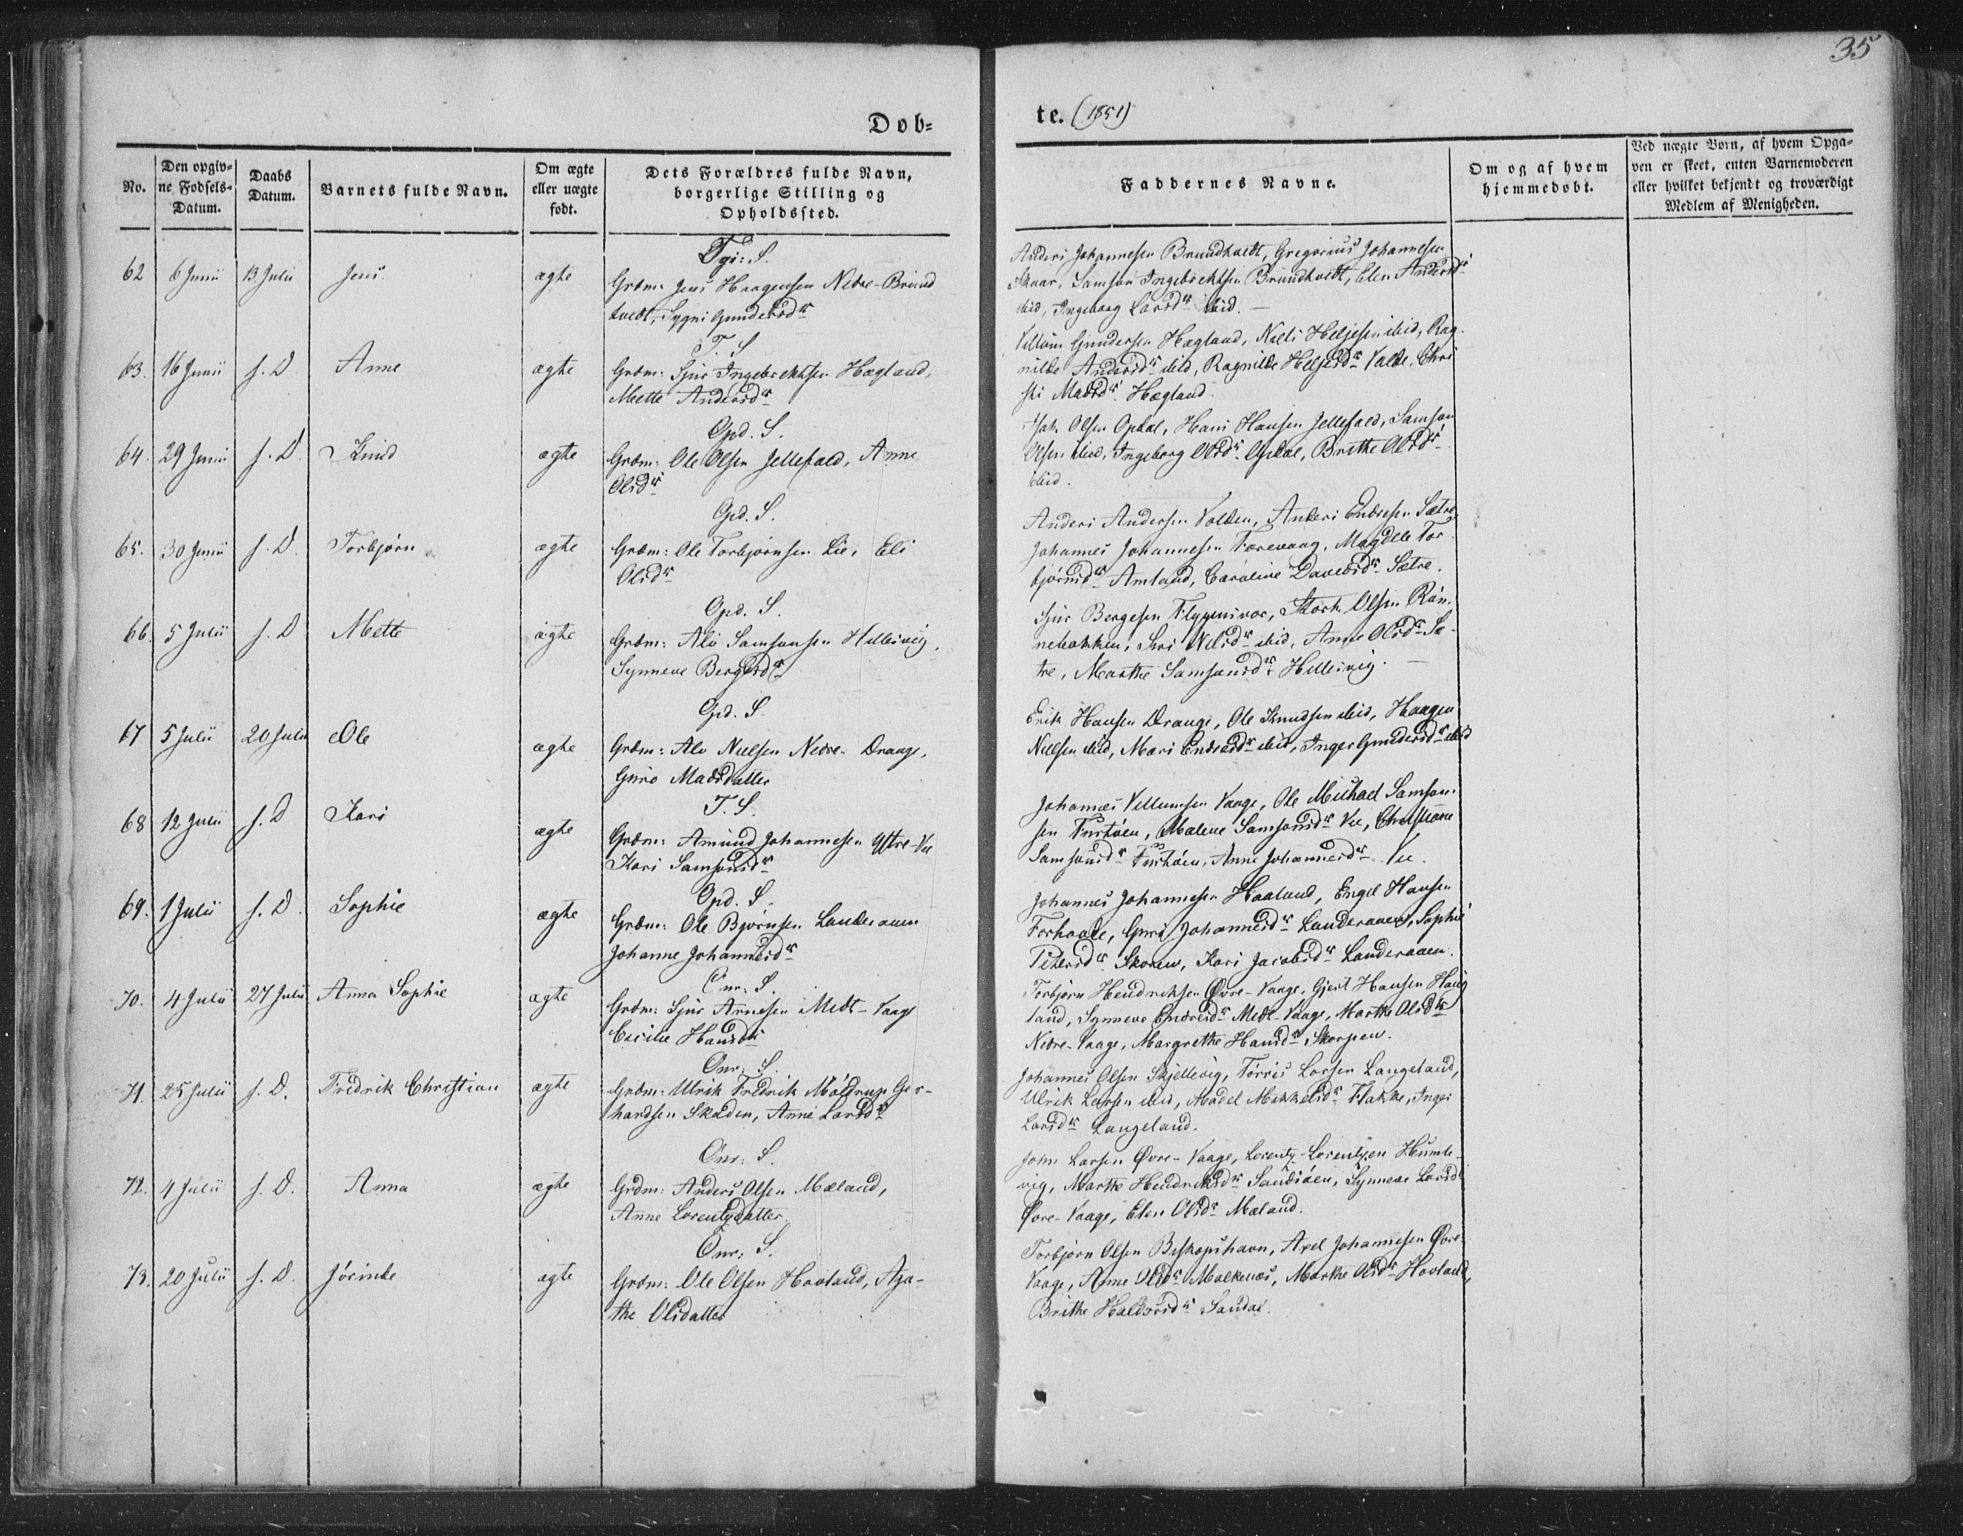 35
Døb=
te. (1851)
No.
Den opgiv-
ne Fødsels-
Datum.
Daabs
Datum.
Barnets fulde Navn.
Om ægte
eller uægte
født.
Dets Forældres fulde Navn,
borgerlige Stilling og
Opholdssted.
Faddernes Navne.
Om og af hvem
hjemmedøbt.
Ved uægte Børn, af hvem Opga-
ven er skeet, enten Barnemoderen
eller hvilket bekjendt og troværdigt
Medlem af Menigheden.
62 6 Junii 13 Julii Jens ægte
Grdm: Jens Haagensen Nedre-Brund
tvedt, Sygni Gundersdr
Anders Johannesen Brundtvedt, Gregorius Johannesen
Skaar, Samson Ingebrektsen Brundtvedt, Elen Andersdr
ibid, Ingeborg Larsdr ibid. —
63. 16 Junii s. D. Anne ægte
T. S.
Grdm: Sjur Ingebrektsen Hægland,
Mette Andersdr
Villum Gundersen Hægland, Niels Heljesen ibid, Rag-
nilde Andersdr ibid, Ragnilde Heljesdr Valde, Chri
sti Madsdr Hægland.
64. 29 Junii s. D. Knud ægte
Opd. S.
Grdm: Ole Olsen Jellefald, Anne
Olsdr
Olsen Opdal, Hans Hansen Jellefald, Samson
Olsen ibid, Ingeborg Olsdr Opdal, Brithe Olsdr
ibid.
65. 30 Junii s. D. Torbjørn ægte
Opd. S.
Grdm: Ole Torbjørnsen Lie, Eli
Olsdr
Anders Andersen Valden, Anders Endresen Sætre,
Johannes Johannesen Færevaag, Magdele Tor-
bjørnsdr Amland, Caroline Davidsdr Sætre.
66. 5 Julii s. D. Mette ægte
Opd. S.
Grdm: Alv Samsonsen Hillesvig,
Synneve Bergesdr
Sjur Bergesen Flygensvær, Olsen Røn-
nebakken, Siri Nilsdr ibid, Anne Olsdr Sæ-
tre, Marthe Samsonsdr Hillesvig. —
67 5 Julii 20 Julii Ole ægte
Opd. S.
Grdm: Alv Nielsen Nedre-Drange,
Guro Madsdatter
Erik Hansen Drange, Ole Knudsen ibid, Haagen
Nielsen ibid, Mari Endresdr ibid, Inger Gundersdr ibid
68 12 Julii s. D Kari ægte
T. S.
Grdm: Amund Johannesen Ystre-Vee
Kari Samsonsdr
Johannes Villumsen Vaage, Ole Michael Samson-
sen Turtøen, Malene Samsonsdr Vee, Christiane
Samsonsdr Turtøen, Anne Johannesdr Vee.
69. 1 Julii s. D. Sophie ægte
Opd. S.
Grdm: Ole Bjørnsen Landeraaen
Johanne Johannesdr
Johannes Johannesen Haaland, Engel Hansen
Forhaale, Guri Johannesdr Landeraaen, Sophie
Petersdr Skoren, Kari Jacobsdr Landeraaen.
70. 4 Julii 27 Julii Anna Sophie ægte
Onr: S.
Grdm: Sjur Arnesen Midt-Vaage
Cecilie Hansdr
Torbjørn Hendriksen Øvre-Vaage, Gjert Hansen Haug
land, Synneve Endresdr Midt-Vaage, Marthe Olsdr
Nedre-Vaage, Margrethe Hansdr Skorpen.
71. 25 Julii s. D. Fredrik Christian ægte
Onr: S.
Grdm: Ulrik Fredrik Møldrup Ger-
hardsen Skaden, Anne Larsdr
Johannes Olsen Skjellevig, Tørris Larsen Langeland,
Ulrik Larsen ibid, Madel Mikkelsdr Flakke, Inger
Larsdr Langeland.
72. 4 Julii s. D. Anna ægte
Onr: S.
Grdm: Anders Olsen Mæland,
Anne Lorentzdatter.
John Larsen Øvre-Vaage, Lorentz Lorentzen Humle-
vig, Marthe Hendriksdr Sandsøen, Synneve Larsdr
Øvre-Vaage, Elen Olsdr Mæland.
73. 20 Julii s. D. Jørinde ægte
Onr: S.
Grdm: Ole Olsen Hovland, Aga-
the Olsdatter
Torbjørn Olsen Biskopshavn, Axel Johannesen Øvre-
Vaage, Anne Olsdr Malkenæs, Marthe Olsdr Hovland,
Brithe Haldorsdr Sandal.